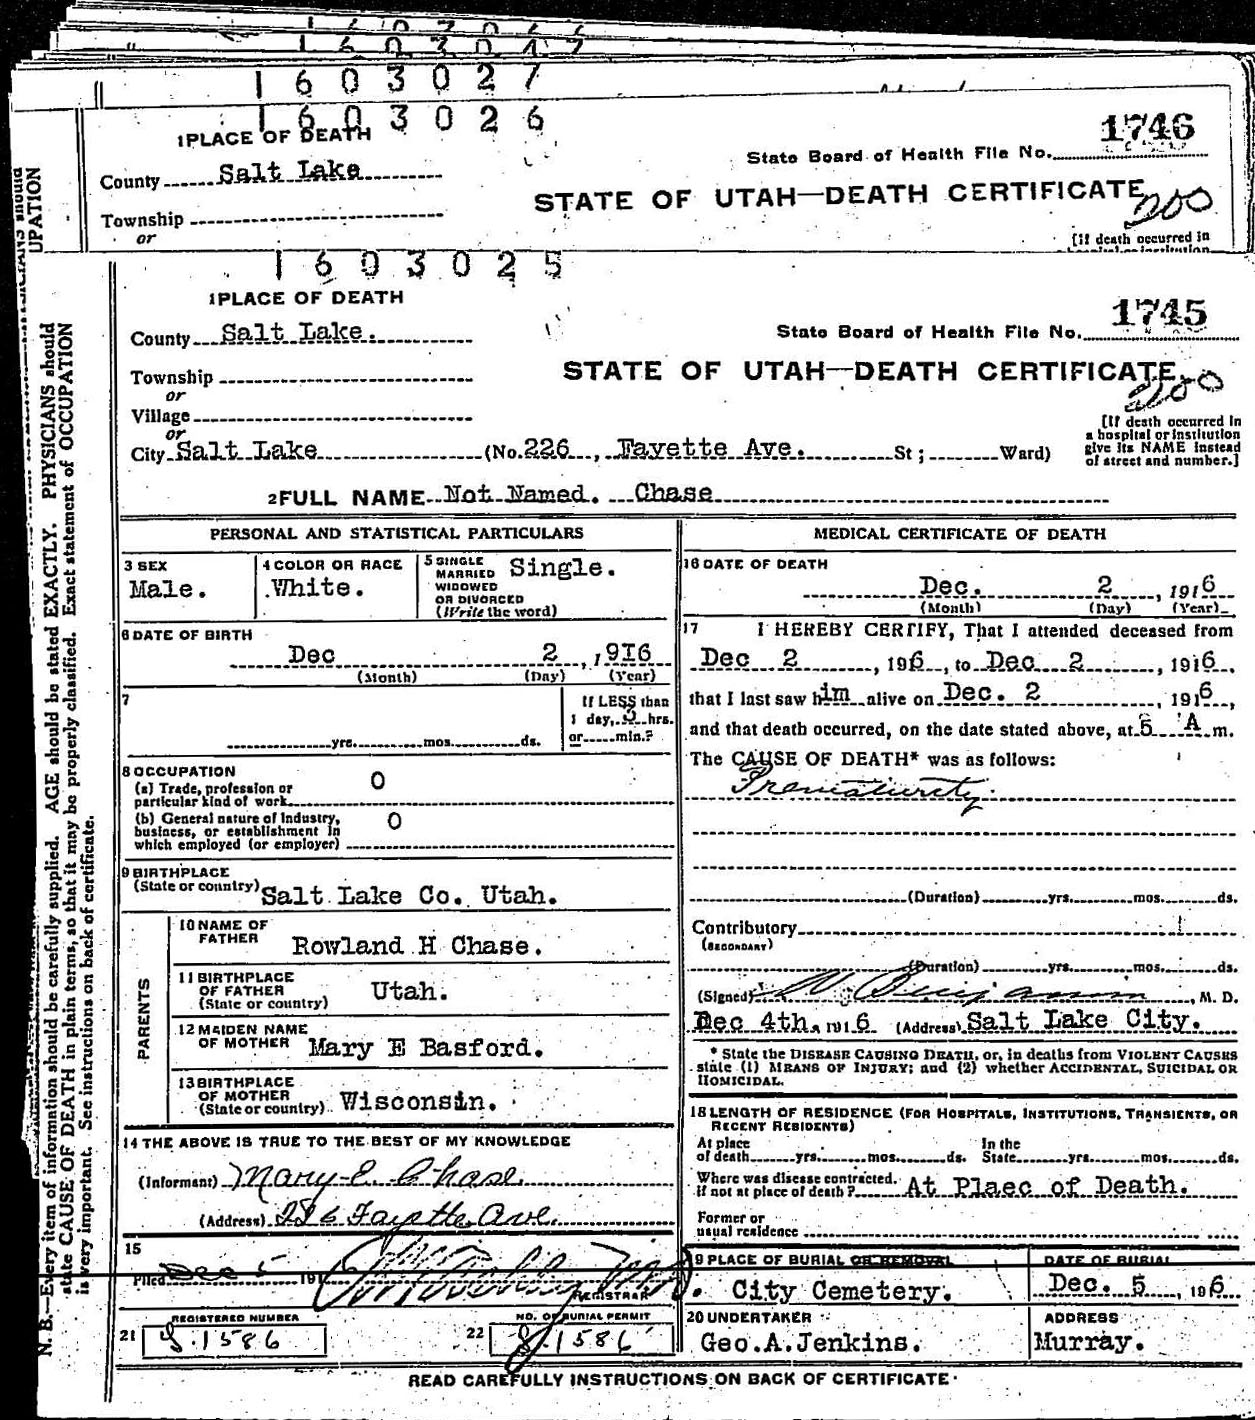 1603027
1603026
1 PLACE OF DEATH
1746
State Board of Health File No.
County Salt Lake
STATE OF UTAH—DEATH CERTIFICATE
200
Township
or
[If death occurred in
1603025
1 PLACE OF DEATH
1745
County Salt Lake.
State Board of Health File No.
Township
STATE OF UTAH—DEATH CERTIFICATE
200
or
Village
or
[If death occurred in
a hospital or institution
give its NAME instead
of street and number.]
City Salt Lake (No. 226, Fayette Ave. St; Ward)
2 FULL NAME Not Named. Chase
PERSONAL AND STATISTICAL PARTICULARS
3 SEX
Male.
4 COLOR OR RACE
White.
5 SINGLE
MARRIED
WIDOWED
OR DIVORCED
(Write the word)
Single.
6 DATE OF BIRTH
Dec 2, 1916
(Month) (Day) (Year)
7
yrs. mos. ds.
If LESS than
1 day, 3 hrs.
or min.?
8 OCCUPATION
(a) Trade, profession or
particular kind of work O
(b) General nature of industry,
business, or establishment in
which employed (or employer) O
9 BIRTHPLACE
(State or country) Salt Lake Co. Utah.
PARENTS
10 NAME OF
FATHER Rowland H Chase.
11 BIRTHPLACE
OF FATHER
(State or country) Utah.
12 MAIDEN NAME
OF MOTHER Mary E Basford.
13 BIRTHPLACE
OF MOTHER
(State or country) Wisconsin.
14 THE ABOVE IS TRUE TO THE BEST OF MY KNOWLEDGE
(Informant) Mary E. Chase.
(Address) 226 Fayette Ave.
15
Filed Dec 5 191
REGISTRAR
REGISTERED NUMBER
21 J.1586
NO. OF BURIAL PERMIT
22 J.1586
MEDICAL CERTIFICATE OF DEATH
16 DATE OF DEATH
Dec. 2, 1916
(Month) (Day) (Year)
17 I HEREBY CERTIFY, That I attended deceased from
Dec 2, 1916, to Dec 2, 1916,
that I last saw him alive on Dec. 2, 1916,
and that death occurred, on the date stated above, at 5 A m.
The CAUSE OF DEATH* was as follows:
Prematurity.
(Duration) yrs. mos. ds.
Contributory
(SECONDARY)
(Duration) yrs. mos. ds.
(Signed) W Benjamin, M. D.
Dec 4th, 1916 (Address) Salt Lake City.
* State the DISEASE CAUSING DEATH, or, in deaths from VIOLENT CAUSES
state (1) MEANS OF INJURY; and (2) whether ACCIDENTAL, SUICIDAL OR
HOMICIDAL.
18 LENGTH OF RESIDENCE (FOR HOSPITALS, INSTITUTIONS, TRANSIENTS, OR
RECENT RESIDENTS)
At place
of death yrs. mos. ds.
In the
State yrs. mos. ds.
Where was disease contracted.
if not at place of death? At Plaec of Death.
Former or
usual residence
19 PLACE OF BURIAL OR REMOVAL
City Cemetery.
DATE OF BURIAL
Dec. 5, 1916
20 UNDERTAKER
Geo.A.Jenkins.
ADDRESS
Murray.
READ CAREFULLY INSTRUCTIONS ON BACK OF CERTIFICATE
N. B.—Every item of information should be carefully supplied. AGE should be stated EXACTLY. PHYSICIANS should
state CAUSE OF DEATH in plain terms, so that it may be properly classified. Exact statement of OCCUPATION
is very important. See instructions on back of certificate.